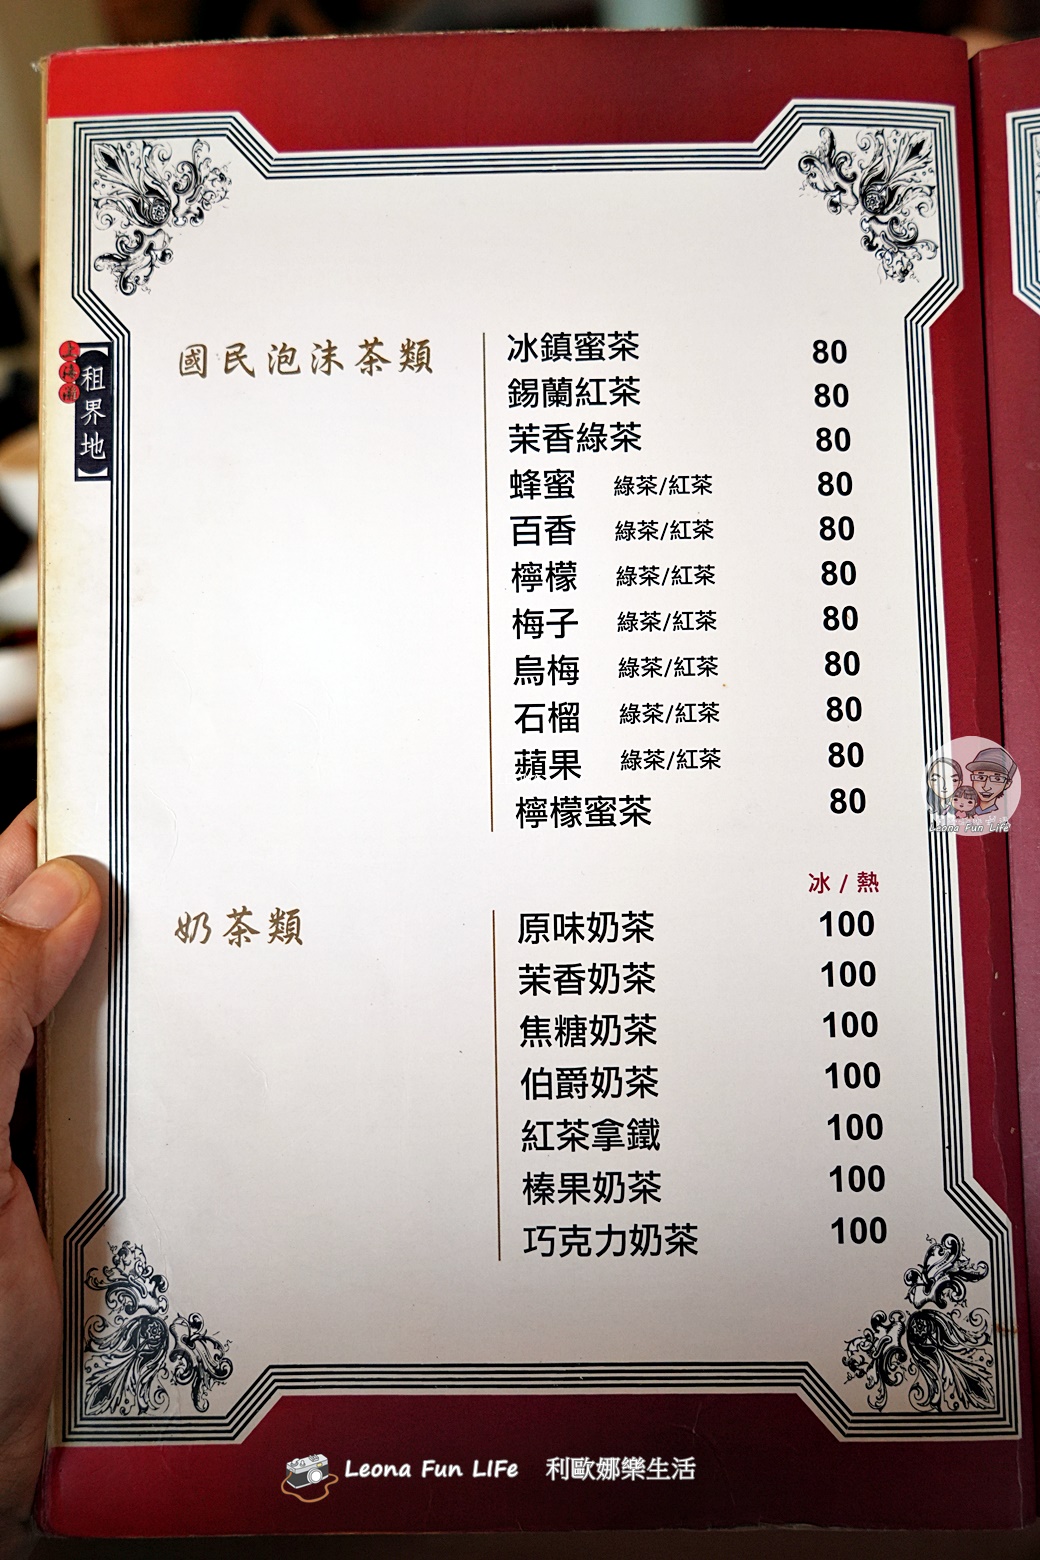 上海灘
【租界地】
國民泡沫茶類
冰鎮蜜茶 80
錫蘭紅茶 80
茉香綠茶 80
蜂蜜 綠茶/紅茶 80
百香 綠茶/紅茶 80
檸檬 綠茶/紅茶 80
梅子 綠茶/紅茶 80
烏梅 綠茶/紅茶 80
石榴 綠茶/紅茶 80
蘋果 綠茶/紅茶 80
檸檬蜜茶 80
冰/熱
奶茶類
原味奶茶 100
茉香奶茶 100
焦糖奶茶 100
伯爵奶茶 100
紅茶拿鐵 100
榛果奶茶 100
巧克力奶茶 100
Leona Fun Life
Leona Fun LIfe 利歐娜樂生活